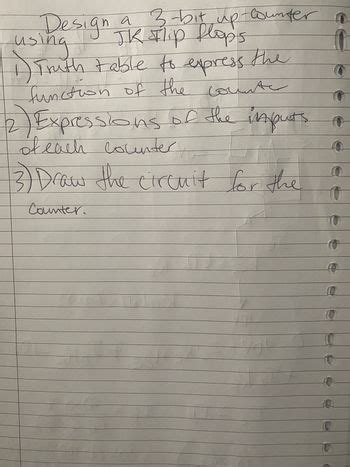 Design a 3-bit up-counter
using JK Flip flops
1) Truth table to express the
function of the counte
2) Expressions of the inputs
of each counter
3) Draw the circuit for the
Counter.